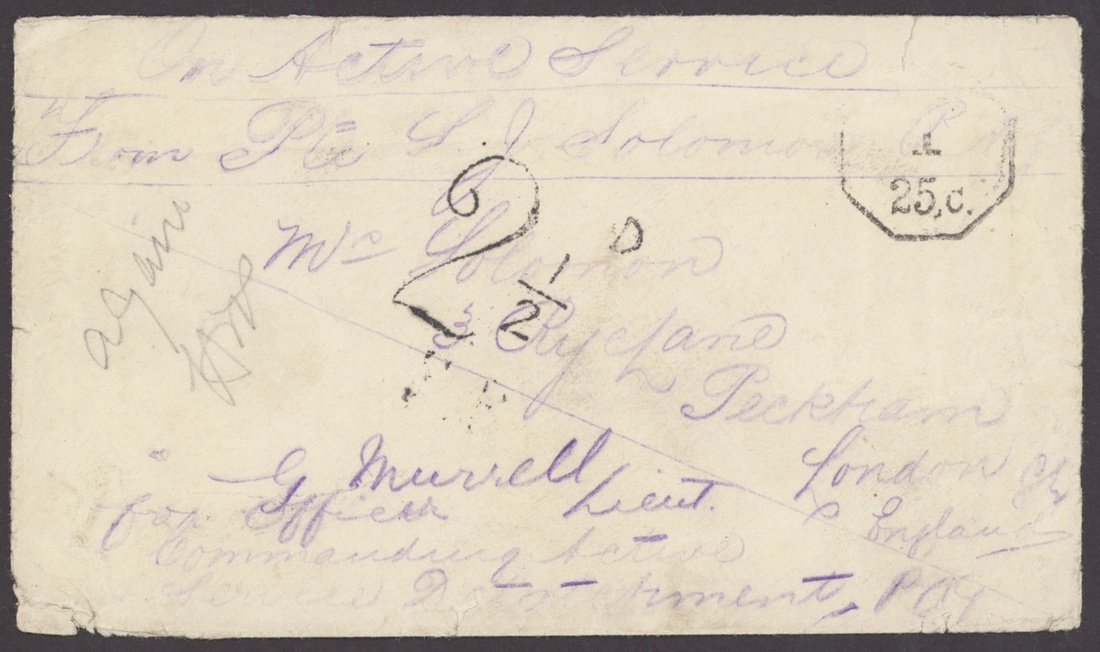 On Active Service
From Pte S. J. Solomon
T
25,c.
2 1/2 D
Mrs Solomon
3. Rye Lane
Peckham
London SE
England
G Murrell Lieut.
for Officer
Commanding Active
Service Detatchment, POA